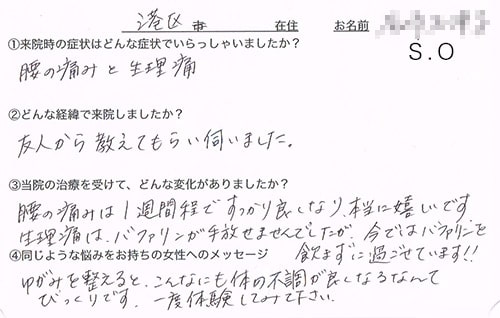 港区市 在住 お名前
S.O
①来院時の症状はどんな症状でいらっしゃいましたか?
腰の痛みと生理痛
②どんな経緯で来院しましたか?
友人から教えてもらい伺いました。
③当院の治療を受けて、どんな変化がありましたか?
腰の痛みは1週間程ですっかり良くなり、本当に嬉しいです
生理痛は、バファリンが手放せませんでしたが、今ではバファリンを
飲まずに過ごせています!!
④同じような悩みをお持ちの女性へのメッセージ
ゆがみを整えると、こんなにも体の不調が良くなるなんて
びっくりです。一度体験してみて下さい。